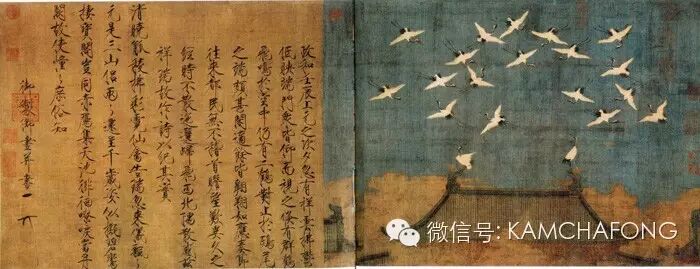 政和壬辰上元之次夕忽有祥雲拂鬱
低映端門眾皆仰而視之倏有群鶴
飛鳴於空中仍有二鶴對止於鴟尾
之端頗甚閒適餘皆翱翔如應奏節
往來都民無不稽首瞻望歎異久之
經時不散迤邐歸飛西北隅散感茲
祥瑞故作詩以紀其實
清曉觚稜拂彩霓仙禽告瑞忽來儀飄々
元是三山侶兩々還呈千歲姿似擬碧鸞
棲寶閣豈同赤鴈集天池徘徊嘹唳當丹
闕故使憧々庶俗知
御製御畫并書
微信号: KAMCHAFONG